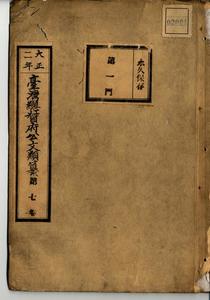 永久保存
第一門
大正二年
臺灣總督府公文類纂 第七卷